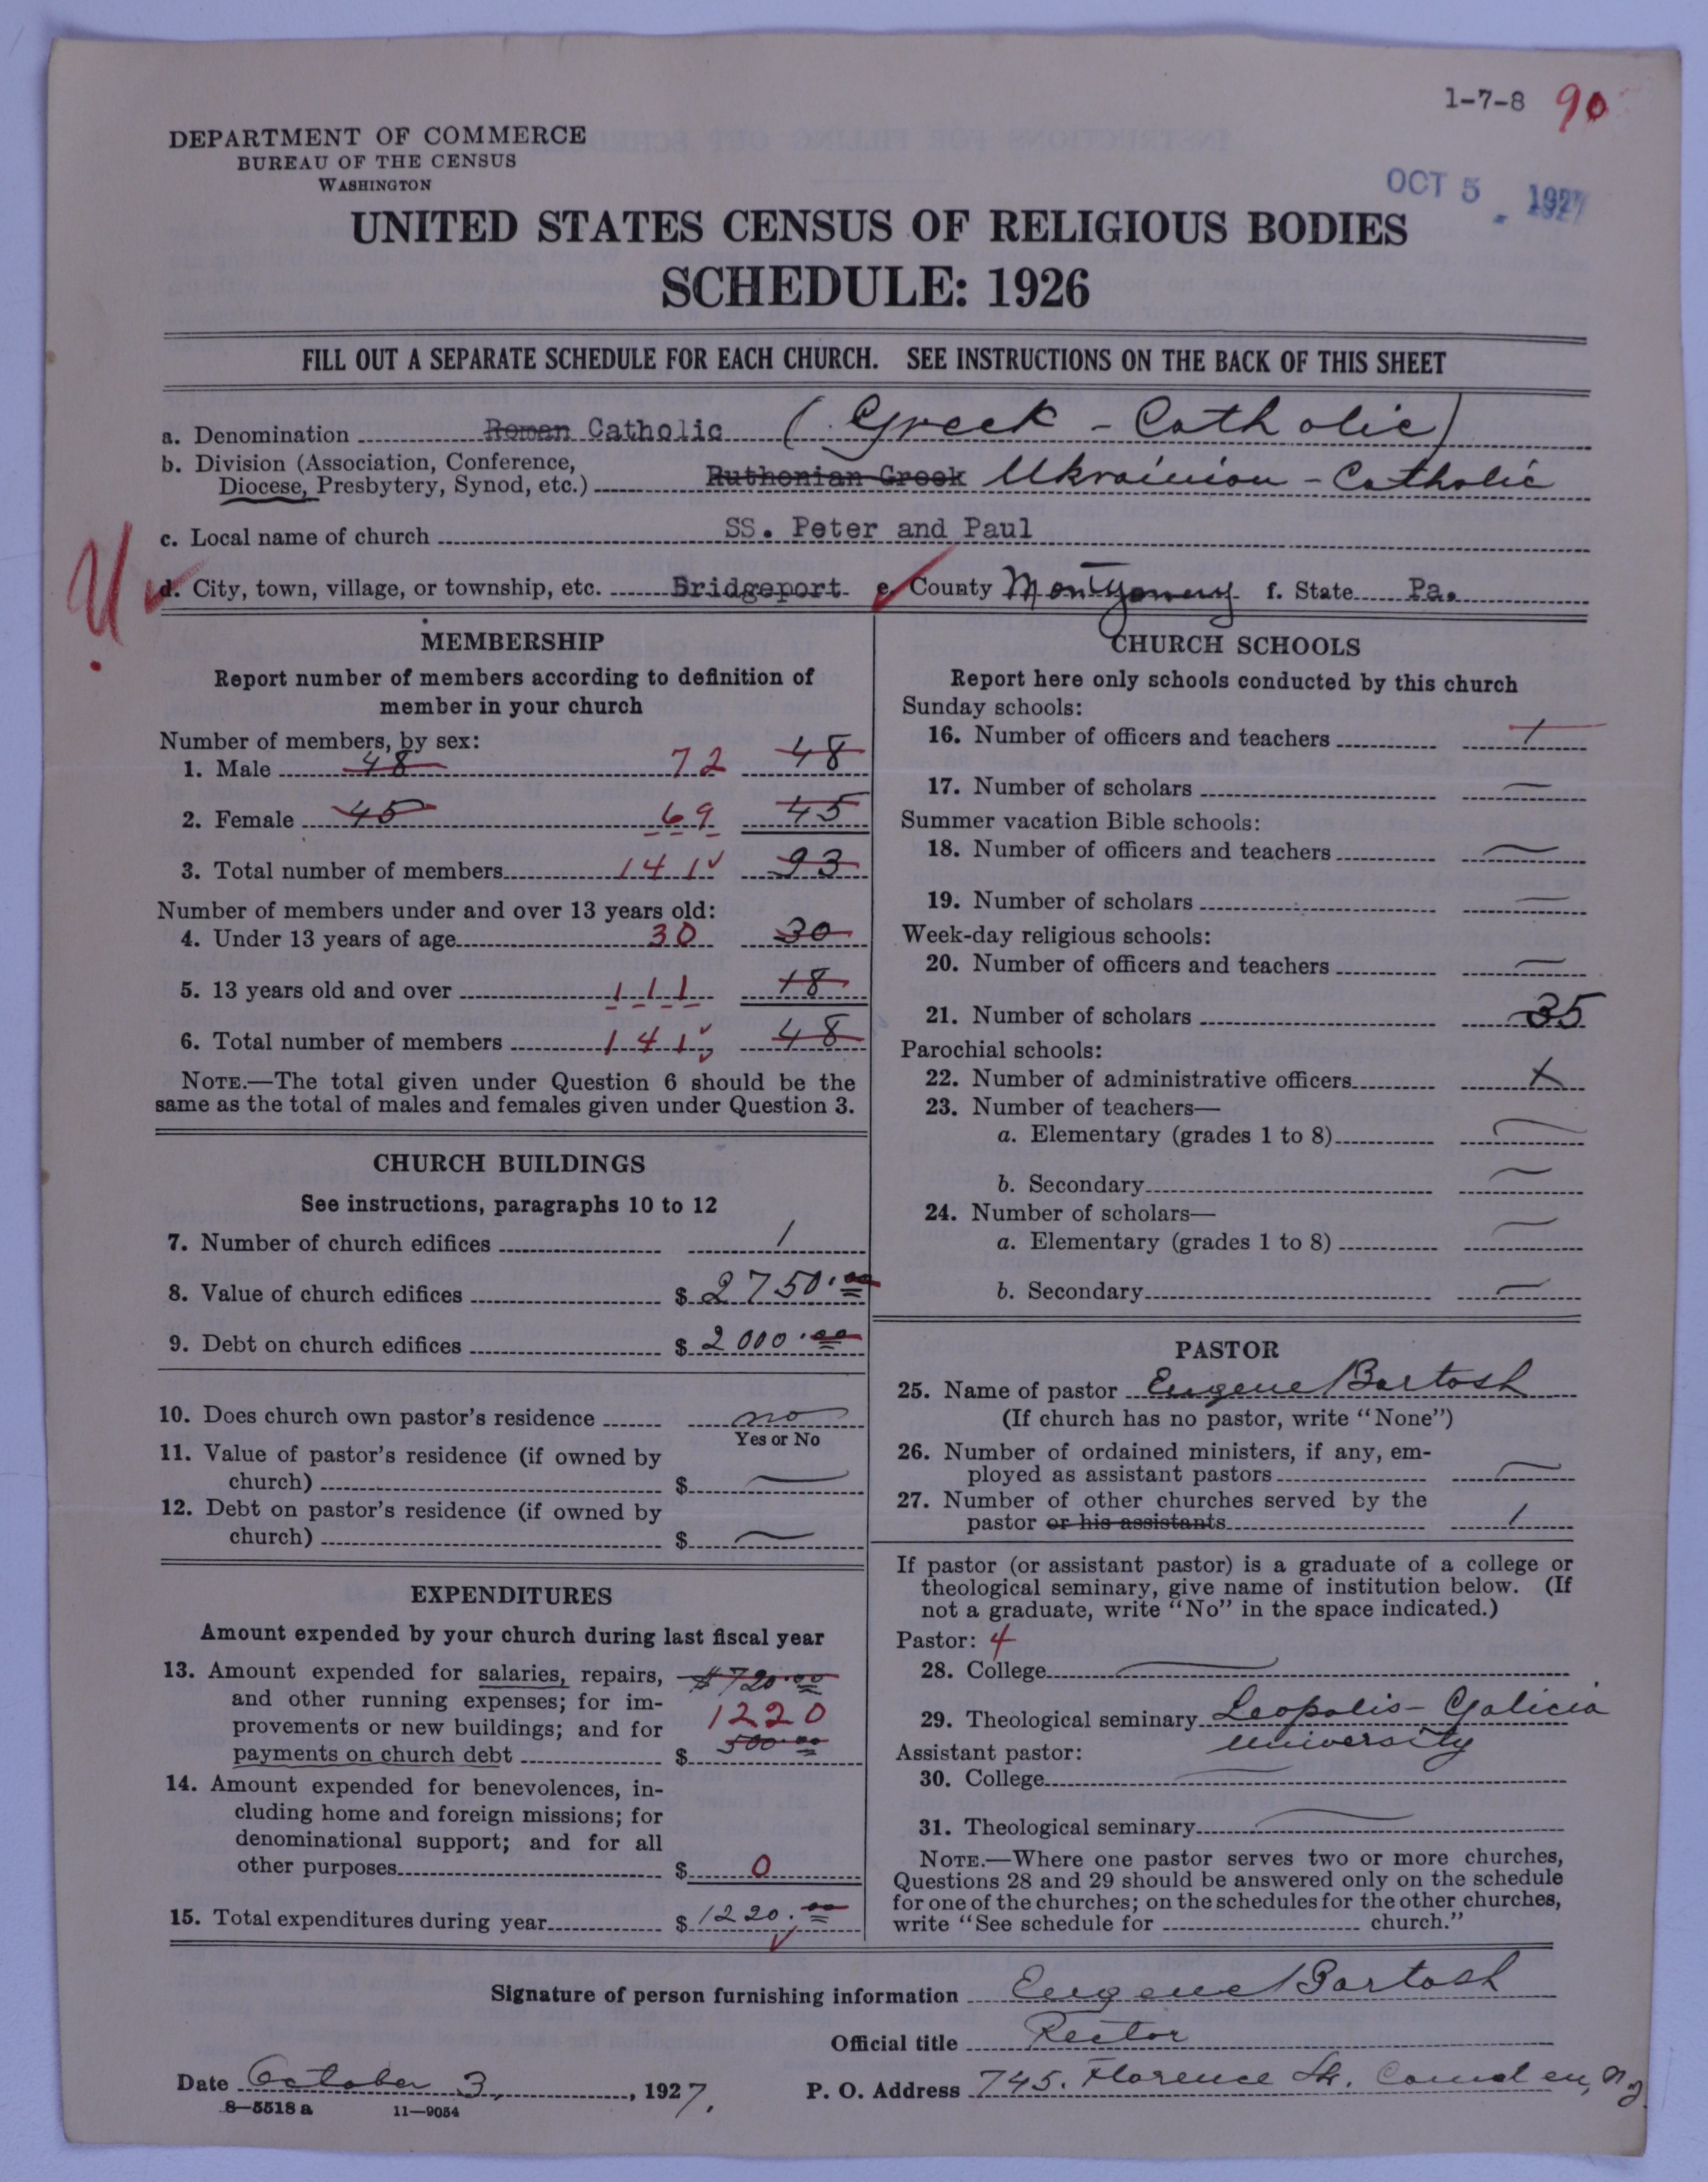 1-7-8 90
DEPARTMENT OF COMMERCE
BUREAU OF THE CENSUS
WASHINGTON
OCT 5 1927
UNITED STATES CENSUS OF RELIGIOUS BODIES
SCHEDULE: 1926
FILL OUT A SEPARATE SCHEDULE FOR EACH CHURCH. SEE INSTRUCTIONS ON THE BACK OF THIS SHEET
a. Denomination Roman Catholic (Greek - Catholic)
b. Division (Association, Conference,
Diocese, Presbytery, Synod, etc.) Ruthenian Greek Ukrainian - Catholic
c. Local name of church SS. Peter and Paul
U
d. City, town, village, or township, etc. Bridgeport e. County Montgomery f. State Pa.
MEMBERSHIP
Report number of members according to definition of
member in your church
Number of members, by sex:
1. Male 48 72 48
2. Female 45 69 45
3. Total number of members 141 93
Number of members under and over 13 years old:
4. Under 13 years of age 30 30
5. 13 years old and over 111 18
6. Total number of members 141 48
NOTE.—The total given under Question 6 should be the
same as the total of males and females given under Question 3.
CHURCH BUILDINGS
See instructions, paragraphs 10 to 12
7. Number of church edifices 1
8. Value of church edifices $ 2750.00
9. Debt on church edifices $ 2000.00
10. Does church own pastor's residence no
Yes or No
11. Value of pastor's residence (if owned by
church) $ —
12. Debt on pastor's residence (if owned by
church) $ —
EXPENDITURES
Amount expended by your church during last fiscal year
13. Amount expended for salaries, repairs, $720.00
and other running expenses; for im-
provements or new buildings; and for 1220
payments on church debt $ 500.00
14. Amount expended for benevolences, in-
cluding home and foreign missions; for
denominational support; and for all
other purposes $ 0
15. Total expenditures during year $ 1220.00
CHURCH SCHOOLS
Report here only schools conducted by this church
Sunday schools:
16. Number of officers and teachers 1
17. Number of scholars —
Summer vacation Bible schools:
18. Number of officers and teachers —
19. Number of scholars —
Week-day religious schools:
20. Number of officers and teachers —
21. Number of scholars 35
Parochial schools:
22. Number of administrative officers x
23. Number of teachers—
a. Elementary (grades 1 to 8) —
b. Secondary —
24. Number of scholars—
a. Elementary (grades 1 to 8) —
b. Secondary —
PASTOR
25. Name of pastor Eugene Bartosh
(If church has no pastor, write "None")
26. Number of ordained ministers, if any, em-
ployed as assistant pastors —
27. Number of other churches served by the
pastor or his assistants 1
If pastor (or assistant pastor) is a graduate of a college or
theological seminary, give name of institution below. (If
not a graduate, write "No" in the space indicated.)
Pastor: 4
28. College —
29. Theological seminary Leopolis - Galicia
university
Assistant pastor:
30. College —
31. Theological seminary —
NOTE.—Where one pastor serves two or more churches,
Questions 28 and 29 should be answered only on the schedule
for one of the churches; on the schedules for the other churches,
write "See schedule for church."
Signature of person furnishing information Eugene Bartosh
Official title Rector
Date October 3, 1927. P. O. Address 745. Florence St. Camden, N.J.
8—5518 a 11—9054